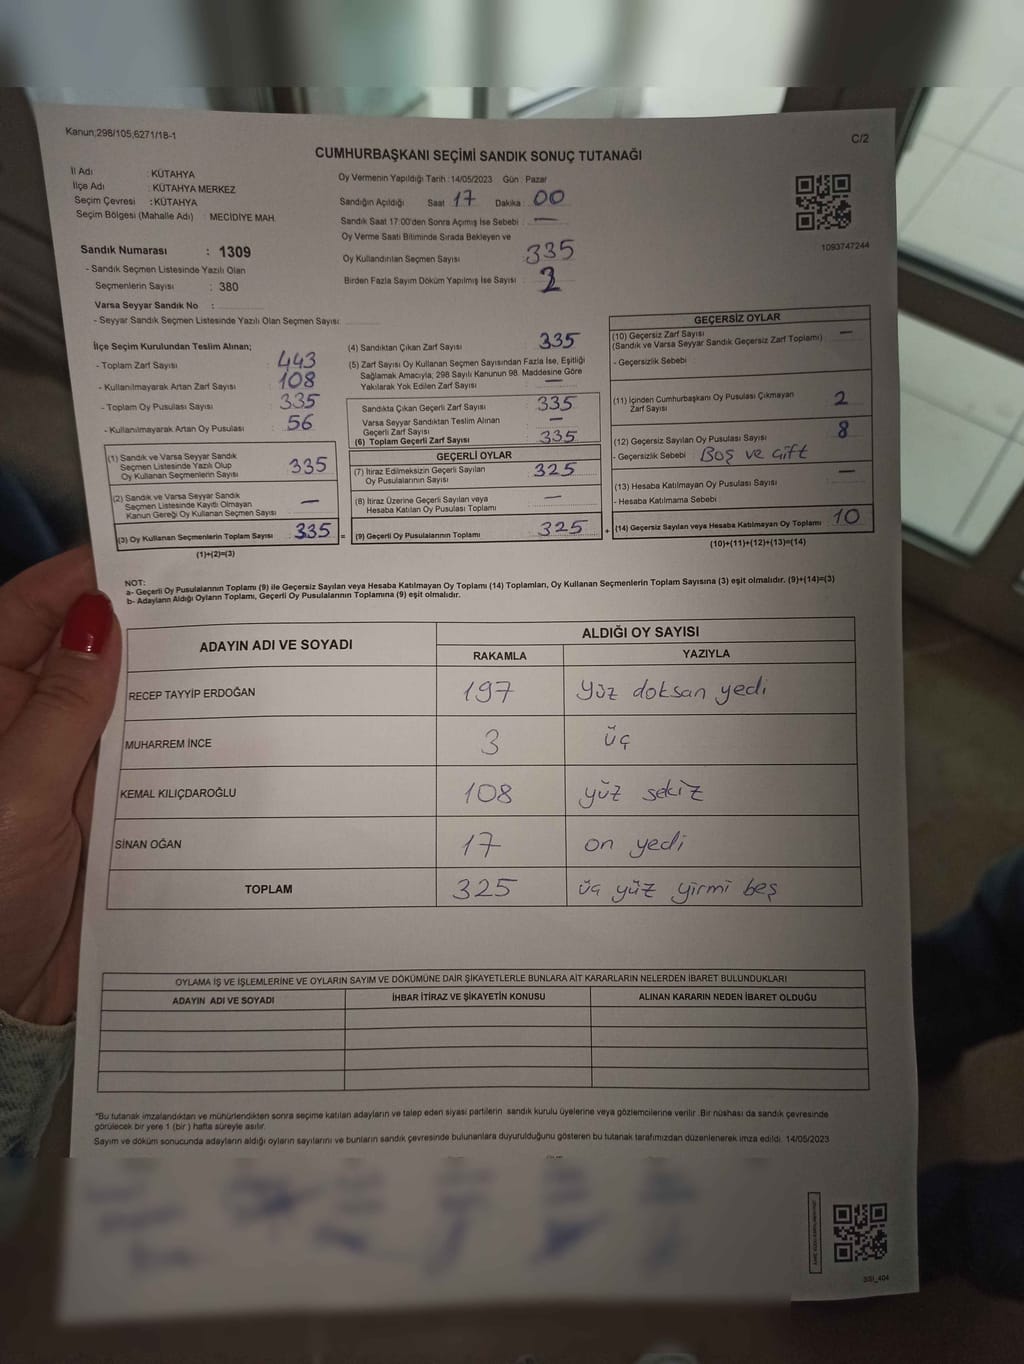 Kanun;298/105;6271/18-1
C/2
CUMHURBAŞKANI SEÇİMİ SANDIK SONUÇ TUTANAĞI
İl Adı : KÜTAHYA
İlçe Adı : KÜTAHYA MERKEZ
Seçim Çevresi : KÜTAHYA
Seçim Bölgesi (Mahalle Adı) : MECİDİYE MAH.
Sandık Numarası : 1309
- Sandık Seçmen Listesinde Yazılı Olan
Seçmenlerin Sayısı : 380
Varsa Seyyar Sandık No :
- Seyyar Sandık Seçmen Listesinde Yazılı Olan Seçmen Sayısı:
Oy Vermenin Yapıldığı Tarih : 14/05/2023 Gün : Pazar
Sandığın Açıldığı Saat : 17 Dakika : 00
Sandık Saat 17:00'den Sonra Açımış İse Sebebi : —
Oy Verme Saati Bitiminde Sırada Bekleyen ve
Oy Kullandırılan Seçmen Sayısı : 335
Birden Fazla Sayım Döküm Yapılmış İse Sayısı :
1093747244
İlçe Seçim Kurulundan Teslim Alınan;
- Toplam Zarf Sayısı : 443
- Kullanılmayarak Artan Zarf Sayısı : 108
- Toplam Oy Pusulası Sayısı : 335
- Kullanılmayarak Artan Oy Pusulası : 56
(1) Sandık ve Varsa Seyyar Sandık
Seçmen Listesinde Yazılı Olup
Oy Kullanan Seçmenlerin Sayısı : 335
(2) Sandık ve Varsa Seyyar Sandık
Seçmen Listesinde Kayıtlı Olmayan
Kanun Gereği Oy Kullanan Seçmen Sayısı : —
(3) Oy Kullanan Seçmenlerin Toplam Sayısı : 335 =
(1)+(2)=(3)
(4) Sandıktan Çıkan Zarf Sayısı : 335
(5) Zarf Sayısı Oy Kullanan Seçmen Sayısından Fazla İse, Eşitliği
Sağlamak Amacıyla; 298 Sayılı Kanunun 98. Maddesine Göre
Yakılarak Yok Edilen Zarf Sayısı : —
Sandıkta Çıkan Geçerli Zarf Sayısı : 335
Varsa Seyyar Sandıktan Teslim Alınan
Geçerli Zarf Sayısı : —
(6) Toplam Geçerli Zarf Sayısı : 335
GEÇERLİ OYLAR
(7) İtiraz Edilmeksizin Geçerli Sayılan
Oy Pusulalarının Sayısı : 325
(8) İtiraz Üzerine Geçerli Sayılan veya
Hesaba Katılan Oy Pusulası Toplamı : —
(9) Geçerli Oy Pusulalarının Toplamı : 325 +
GEÇERSİZ OYLAR
(10) Geçersiz Zarf Sayısı
(Sandık ve Varsa Seyyar Sandık Geçersiz Zarf Toplamı) : —
- Geçersizlik Sebebi :
(11) İçinden Cumhurbaşkanı Oy Pusulası Çıkmayan
Zarf Sayısı : 2
(12) Geçersiz Sayılan Oy Pusulası Sayısı : 8
- Geçersizlik Sebebi : Boş ve Çift
(13) Hesaba Katılmayan Oy Pusulası Sayısı : —
- Hesaba Katılmama Sebebi :
(14) Geçersiz Sayılan veya Hesaba Katılmayan Oy Toplamı : 10
(10)+(11)+(12)+(13)=(14)
NOT:
a- Geçerli Oy Pusulalarının Toplamı (9) ile Geçersiz Sayılan veya Hesaba Katılmayan Oy Toplamı (14) Toplamları, Oy Kullanan Seçmenlerin Toplam Sayısına (3) eşit olmalıdır. (9)+(14)=(3)
b- Adayların Aldığı Oyların Toplamı, Geçerli Oy Pusulalarının Toplamına (9) eşit olmalıdır.
ADAYIN ADI VE SOYADI
ALDIĞI OY SAYISI
RAKAMLA YAZIYLA
RECEP TAYYİP ERDOĞAN 197 Yüz doksan yedi
MUHARREM İNCE 3 üç
KEMAL KILIÇDAROĞLU 108 yüz sekiz
SİNAN OĞAN 17 on yedi
TOPLAM 325 üç yüz yirmi beş
OYLAMA İŞ VE İŞLEMLERİNE VE OYLARIN SAYIM VE DÖKÜMÜNE DAİR ŞİKAYETLERLE BUNLARA AİT KARARLARIN NELERDEN İBARET BULUNDUKLARI
ADAYIN ADI VE SOYADI İHBAR İTİRAZ VE ŞİKAYETİN KONUSU ALINAN KARARIN NEDEN İBARET OLDUĞU
*Bu tutanak imzalandıktan ve mühürlendikten sonra seçime katılan adayların ve talep eden siyasi partilerin sandık kurulu üyelerine veya gözlemcilerine verilir. Bir nüshası da sandık çevresinde
görülecek bir yere 1 (bir) hafta süreyle asılır.
Sayım ve döküm sonucunda adayların aldığı oyların sayılarını ve bunların sandık çevresinde bulunanlara duyurulduğunu gösteren bu tutanak tarafımızdan düzenlenerek imza edildi. 14/05/2023